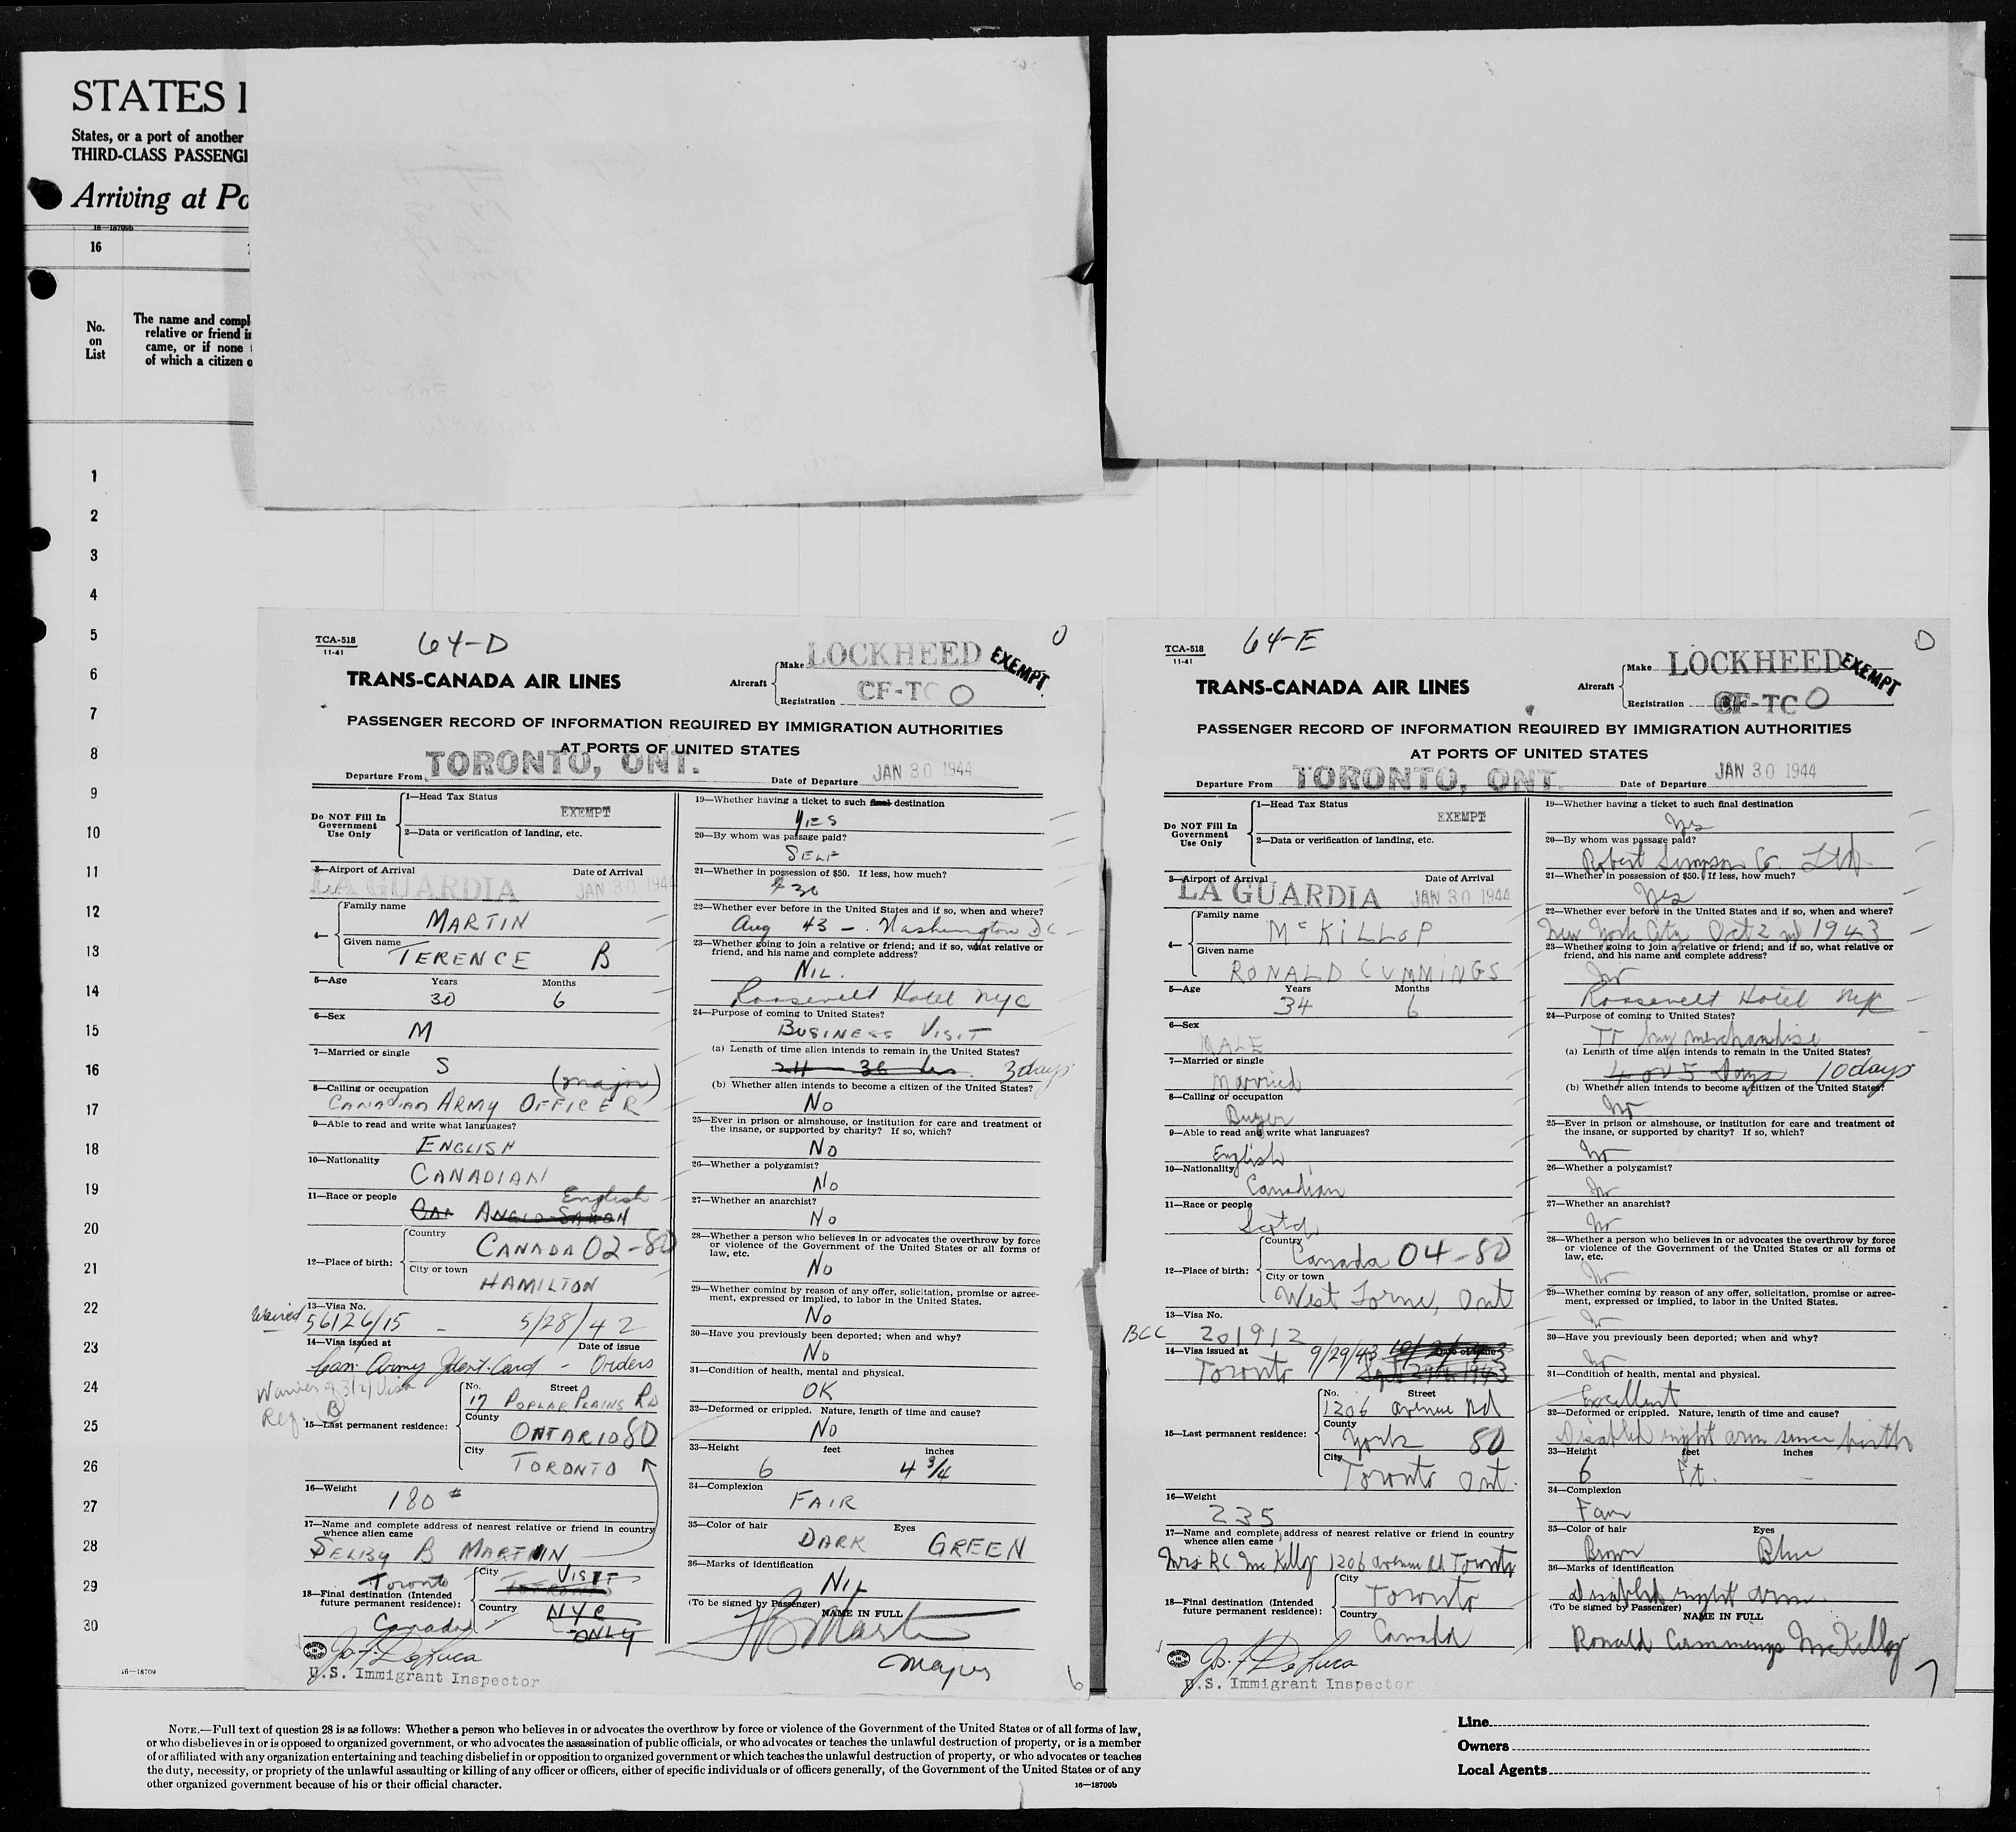 STATES
States, or a port of another
THIRD-CLASS PASSENG
Arriving at Po
16—18709b
16
No.
on
List
The name and compl
relative or friend i
came, or if none
of which a citizen o
1
2
3
4
5
6
7
8
9
10
11
12
13
14
15
16
17
18
19
20
21
22
23
24
25
26
27
28
29
30
16—18709
TCA-518
11-41
64-D
0
TRANS-CANADA AIR LINES
Aircraft
Make LOCKHEED EXEMPT
Registration CF-TCO
PASSENGER RECORD OF INFORMATION REQUIRED BY IMMIGRATION AUTHORITIES
AT PORTS OF UNITED STATES
Departure From TORONTO, ONT. Date of Departure JAN 30 1944
Do NOT Fill In
Government
Use Only
1—Head Tax Status
EXEMPT
2—Data or verification of landing, etc.
3—Airport of Arrival Date of Arrival
LA GUARDIA JAN 30 1944
4—
Family name
MARTIN
Given name
TERENCE B
5—Age Years Months
30 6
6—Sex
M
7—Married or single
S
8—Calling or occupation (major)
CANADIAN ARMY OFFICER
9—Able to read and write what languages?
ENGLISH
10—Nationality
CANADIAN
11—Race or people English
Can ANGLO-SAXON
12—Place of birth:
Country
CANADA 02-80
City or town
HAMILTON
13—Visa No.
Waived 56126/15 - 5/28/42
14—Visa issued at Date of issue
Can. Army Ident. Card - Orders
Waiver 9 3(2) Visa
Ref. B
15—Last permanent residence:
No. Street
17 POPLAR PLAINS RD
County
ONTARIO 80
City
TORONTO
16—Weight
180 #
17—Name and complete address of nearest relative or friend in country
whence alien came
SELBY B MARTIN
18—Final destination (Intended
future permanent residence):
Toronto
Canada
City
VISIT
TORONTO
Country
NYC
ONLY
Jos. F. DeLuca
U.S. Immigrant Inspector
19—Whether having a ticket to such final destination
YES
20—By whom was passage paid?
SELF
21—Whether in possession of $50. If less, how much?
$30
22—Whether ever before in the United States and if so, when and where?
Aug 43 -. Washington DC
23—Whether going to join a relative or friend; and if so, what relative or
friend, and his name and complete address?
NIL.
Roosevelt Hotel NYC
24—Purpose of coming to United States?
BUSINESS VISIT
(a) Length of time alien intends to remain in the United States?
24 - 36 hrs. 3 days
(b) Whether alien intends to become a citizen of the United States?
NO
25—Ever in prison or almshouse, or institution for care and treatment of
the insane, or supported by charity? If so, which?
NO
26—Whether a polygamist?
NO
27—Whether an anarchist?
NO
28—Whether a person who believes in or advocates the overthrow by force
or violence of the Government of the United States or all forms of
law, etc.
NO
29—Whether coming by reason of any offer, solicitation, promise or agree-
ment, expressed or implied, to labor in the United States.
NO
30—Have you previously been deported; when and why?
NO
31—Condition of health, mental and physical.
OK
32—Deformed or crippled. Nature, length of time and cause?
NO
33—Height feet inches
6 4 3/4
34—Complexion
FAIR
35—Color of hair Eyes
DARK GREEN
36—Marks of identification
NIL
(To be signed by Passenger) NAME IN FULL
TB Martin
Major
6
TCA-518
11-41
64-E
0
TRANS-CANADA AIR LINES
Aircraft
Make LOCKHEED EXEMPT
Registration CF-TCO
PASSENGER RECORD OF INFORMATION REQUIRED BY IMMIGRATION AUTHORITIES
AT PORTS OF UNITED STATES
Departure From TORONTO, ONT. Date of Departure JAN 30 1944
Do NOT Fill In
Government
Use Only
1—Head Tax Status
EXEMPT
2—Data or verification of landing, etc.
3—Airport of Arrival Date of Arrival
LA GUARDIA JAN 30 1944
4—
Family name
McKILLOP
Given name
RONALD CUMMINGS
5—Age Years Months
34 6
6—Sex
MALE
7—Married or single
Married
8—Calling or occupation
Buyer
9—Able to read and write what languages?
English
10—Nationality
Canadian
11—Race or people
Scotch
12—Place of birth:
Country
Canada 04-80
City or town
West Lorne, Ont
13—Visa No.
BCC 201912
14—Visa issued at Date of issue
Toronto 9/29/43 Sept 29th 1943
15—Last permanent residence:
No. Street
1206 avenue Rd
County
York 80
City
Toronto Ont.
16—Weight
235
17—Name and complete address of nearest relative or friend in country
whence alien came
Mrs RC McKillop 1206 avenue Rd Toronto
18—Final destination (Intended
future permanent residence):
City
Toronto
Country
Canada
Jos. F. DeLuca
U.S. Immigrant Inspector
19—Whether having a ticket to such final destination
Yes
20—By whom was passage paid?
Robert Simpson Co. Ltd.
21—Whether in possession of $50. If less, how much?
Yes
22—Whether ever before in the United States and if so, when and where?
New York City Oct 2nd 1943
23—Whether going to join a relative or friend; and if so, what relative or
friend, and his name and complete address?
No
Roosevelt Hotel NYC
24—Purpose of coming to United States?
To buy merchandise
(a) Length of time alien intends to remain in the United States?
4 or 5 days 10 days
(b) Whether alien intends to become a citizen of the United States?
No
25—Ever in prison or almshouse, or institution for care and treatment of
the insane, or supported by charity? If so, which?
No
26—Whether a polygamist?
No
27—Whether an anarchist?
No
28—Whether a person who believes in or advocates the overthrow by force
or violence of the Government of the United States or all forms of
law, etc.
No
29—Whether coming by reason of any offer, solicitation, promise or agree-
ment, expressed or implied, to labor in the United States.
No
30—Have you previously been deported; when and why?
No
31—Condition of health, mental and physical.
Excellent
32—Deformed or crippled. Nature, length of time and cause?
Disabled right arm since birth
33—Height feet inches
6 ft. -
34—Complexion
Fair
35—Color of hair Eyes
Brown Blue
36—Marks of identification
Disabled right arm.
(To be signed by Passenger) NAME IN FULL
Ronald Cummings McKillop
7
NOTE.—Full text of question 28 is as follows: Whether a person who believes in or advocates the overthrow by force or violence of the Government of the United States or of all forms of law,
or who disbelieves in or is opposed to organized government, or who advocates the assassination of public officials, or who advocates or teaches the unlawful destruction of property, or is a member
of or affiliated with any organization entertaining and teaching disbelief in or opposition to organized government or which teaches the unlawful destruction of property, or who advocates or teaches
the duty, necessity, or propriety of the unlawful assaulting or killing of any officer or officers, either of specific individuals or of officers generally, of the Government of the United States or of any
other organized government because of his or their official character.
16—18709b
Line
Owners
Local Agents